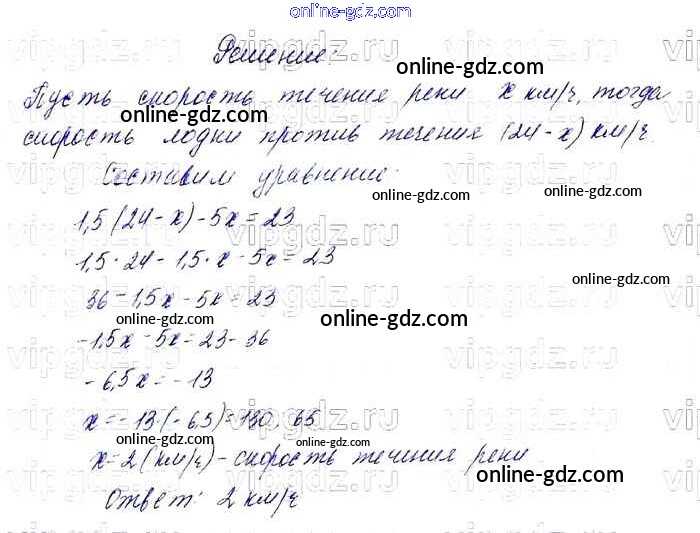 online-gdz.com
Решение:
online-gdz.com
Пусть скорость течения реки x км/ч, тогда
online-gdz.com
скорость лодки против течения (24-x) км/ч.
Составим уравнение:
online-gdz.com
1,5(24-x)-5x=23
online-gdz.com
1,5·24-1,5·x-5x=23
online-gdz.com
36-1,5x-5x=23
online-gdz.com
online-gdz.com
-1,5x-5x=23-36
-6,5x=-13
x=-13:(-6,5)=130:65
online-gdz.com
online-gdz.com
x=2(км/ч)-скорость течения реки
online-gdz.com
Ответ: 2 км/ч
vipgdz.ru